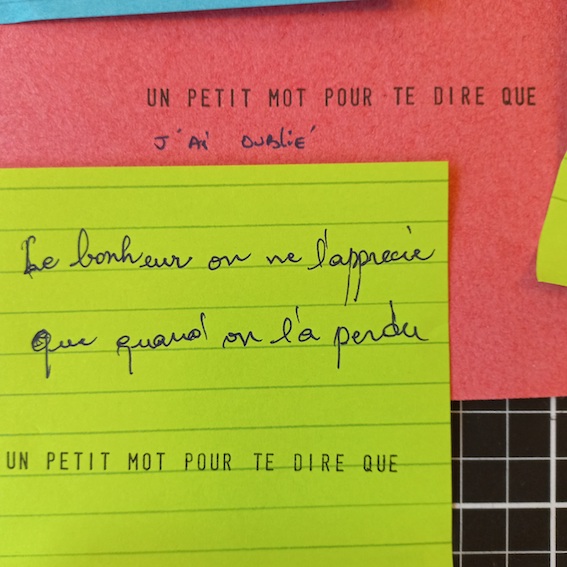 UN PETIT MOT POUR TE DIRE QUE
J'AI OUBLIÉ
Le bonheur on ne l'apprecie
que quand on l'a perdu
UN PETIT MOT POUR TE DIRE QUE